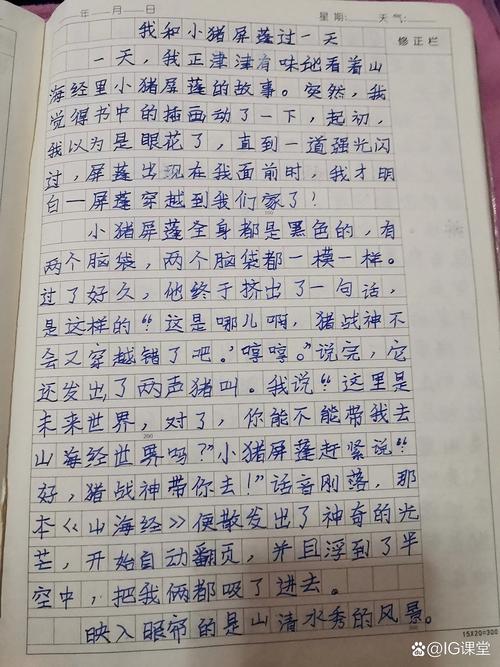 年 月 日 星期: 天气:
我和小猪屏蓬过一天
修正栏
一天，我正津津有味地看着山
海经里小猪屏蓬的故事。突然，我
觉得书中的插画动了一下，起初，
我以为是眼花了，直到一道强光闪
过，屏蓬出现在我面前时，我才明
白一屏蓬穿越到我们家了！
小猪屏蓬全身都是黑色的，有
两个脑袋，两个脑袋都一模一样。
过了好久，他终于挤出了一句话，
是这样的“这是哪儿啊，猪战神不
会又穿越错了吧。’哼哼。”说完，它
还发出了两声猪叫。我说“这里是
未来世界，对了，你能不能带我去
山海经世界吗？”小猪屏蓬赶紧说“
好，猪战神带你去！”话音刚落，那
本《山海经》便散发出了神奇的光
芒，开始自动翻页，并且浮到了半
空中，把我俩都吸了进去。
映入眼帘的是山清水秀的风景。
15X20=300
@IG课堂